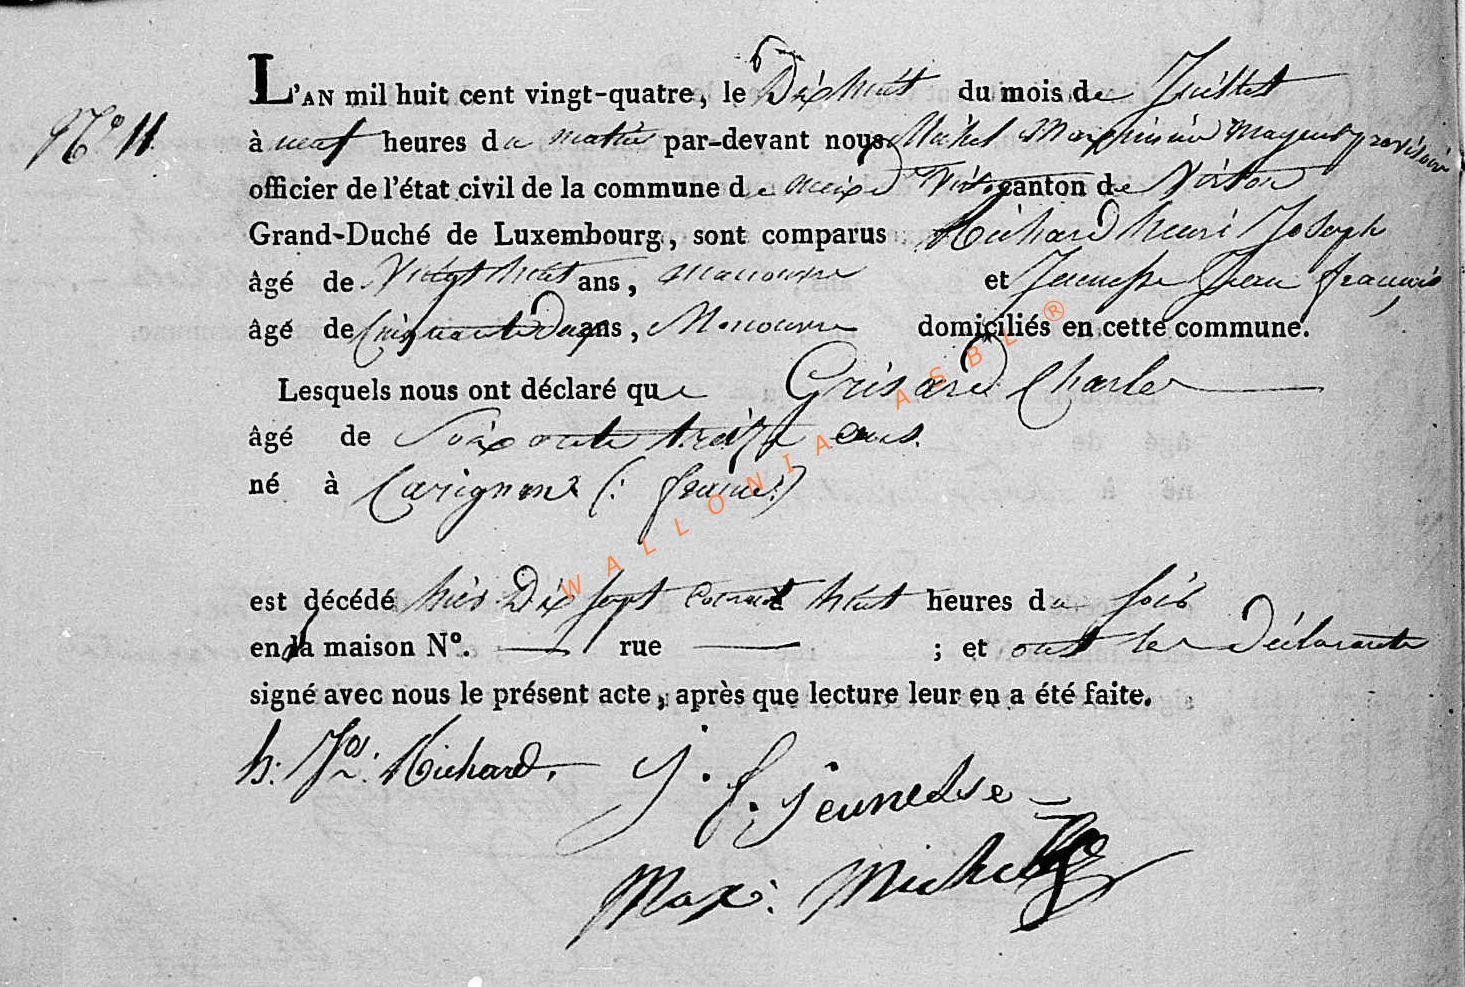 L'AN mil huit cent vingt-quatre, le Dix huit du mois de Juillet
N.° 11.
à neuf heures du matin par-devant nous Michel Maximin Mayeur provisoire
officier de l'état civil de la commune de Meix dt Virton canton de Virton
Grand-Duché de Luxembourg, sont comparus Richard henri Joseph
âgé de Vingt huit ans, manouvre et Jeunesse Jean françois
âgé de Cinquante Deux ans, Manouvre domiciliés en cette commune.
Lesquels nous ont déclaré que Grisard Charles
âgé de Soixante treize ans.
né à Carignan (: france :)
est décédé hier Dix sept courant huit heures du soir
en la maison N°. — rue — ; et ont les Déclarants
signé avec nous le présent acte, après que lecture leur en a été faite.
h: Jos: Richard. J. f. jeunesse
Max: Michel
WALLONIA ASBL ®